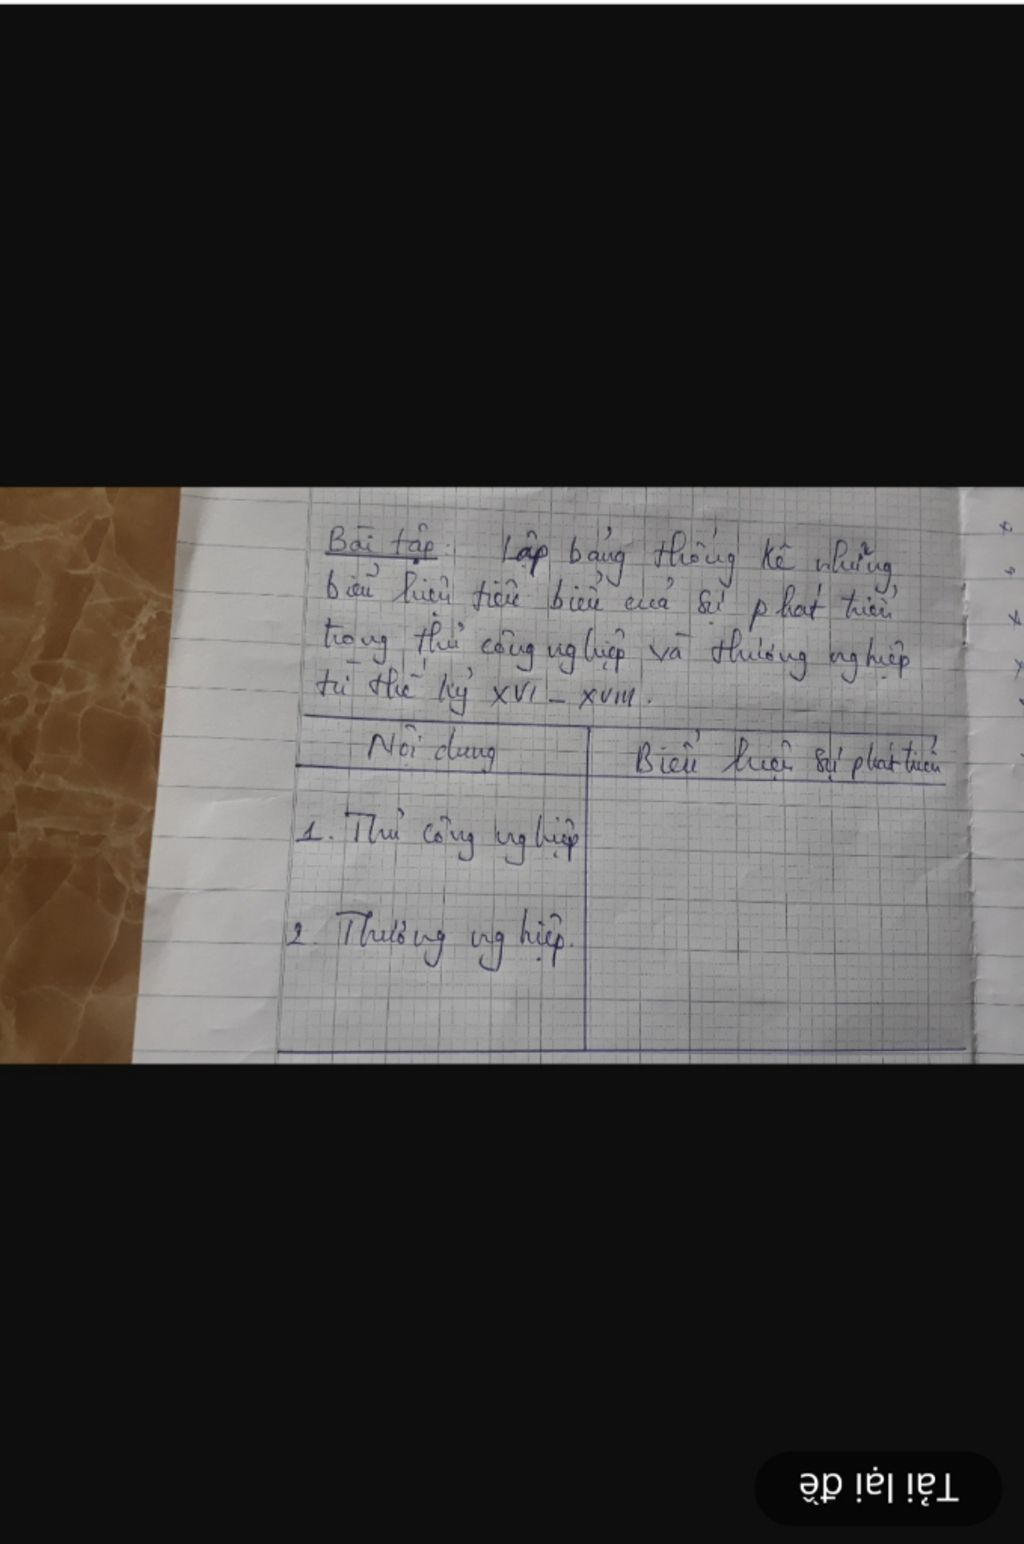 Bài tập: Lập bảng thống kê những
biểu hiện tiêu biểu của sự phát triển
trong thủ công nghiệp và thương nghiệp
từ thế kỷ XVI - XVIII.
Nội dung
Biểu hiện sự phát triển
1. Thủ công nghiệp
2. Thương nghiệp.
Tải lại đề